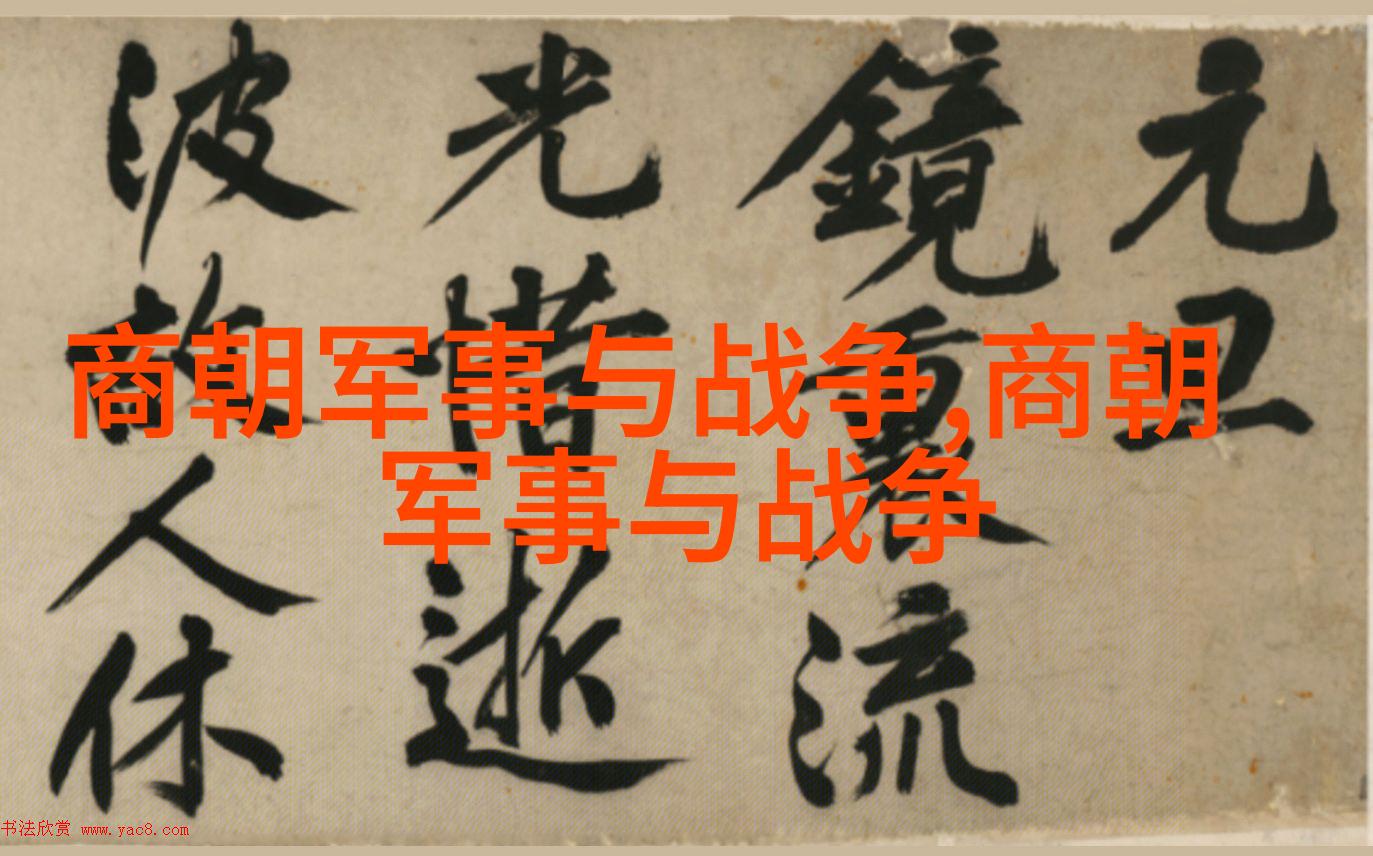 元丑
鏡裏流
光惜逝
波故人休
商朝军事与战争,商朝
军事与战争
书法欣赏 www.yac8.com